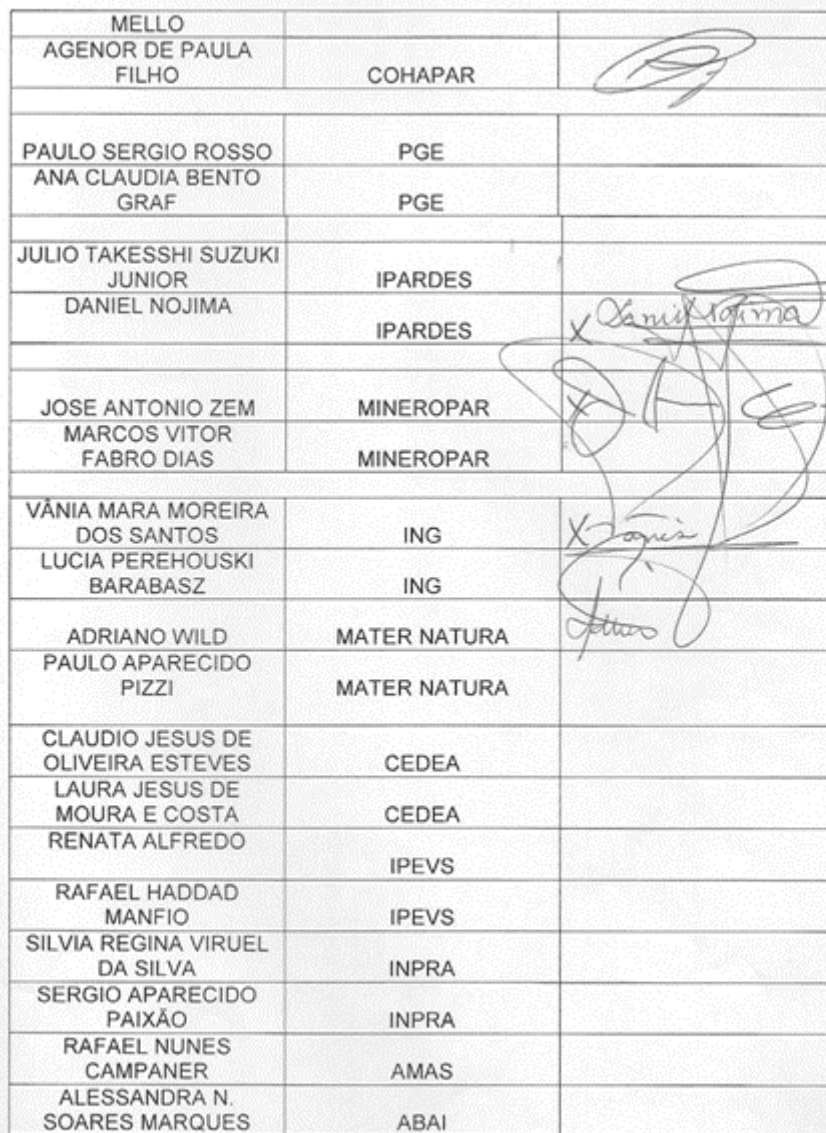 MELLO
AGENOR DE PAULA
FILHO COHAPAR
PAULO SERGIO ROSSO PGE
ANA CLAUDIA BENTO
GRAF PGE
JULIO TAKESSHI SUZUKI
JUNIOR IPARDES
DANIEL NOJIMA
IPARDES X Daniel Nojima
JOSE ANTONIO ZEM MINEROPAR X
MARCOS VITOR
FABRO DIAS MINEROPAR
VÂNIA MARA MOREIRA
DOS SANTOS ING X
LUCIA PEREHOUSKI
BARABASZ ING
ADRIANO WILD MATER NATURA
PAULO APARECIDO
PIZZI MATER NATURA
CLAUDIO JESUS DE
OLIVEIRA ESTEVES CEDEA
LAURA JESUS DE
MOURA E COSTA CEDEA
RENATA ALFREDO
IPEVS
RAFAEL HADDAD
MANFIO IPEVS
SILVIA REGINA VIRUEL
DA SILVA INPRA
SERGIO APARECIDO
PAIXÃO INPRA
RAFAEL NUNES
CAMPANER AMAS
ALESSANDRA N.
SOARES MARQUES ABAI